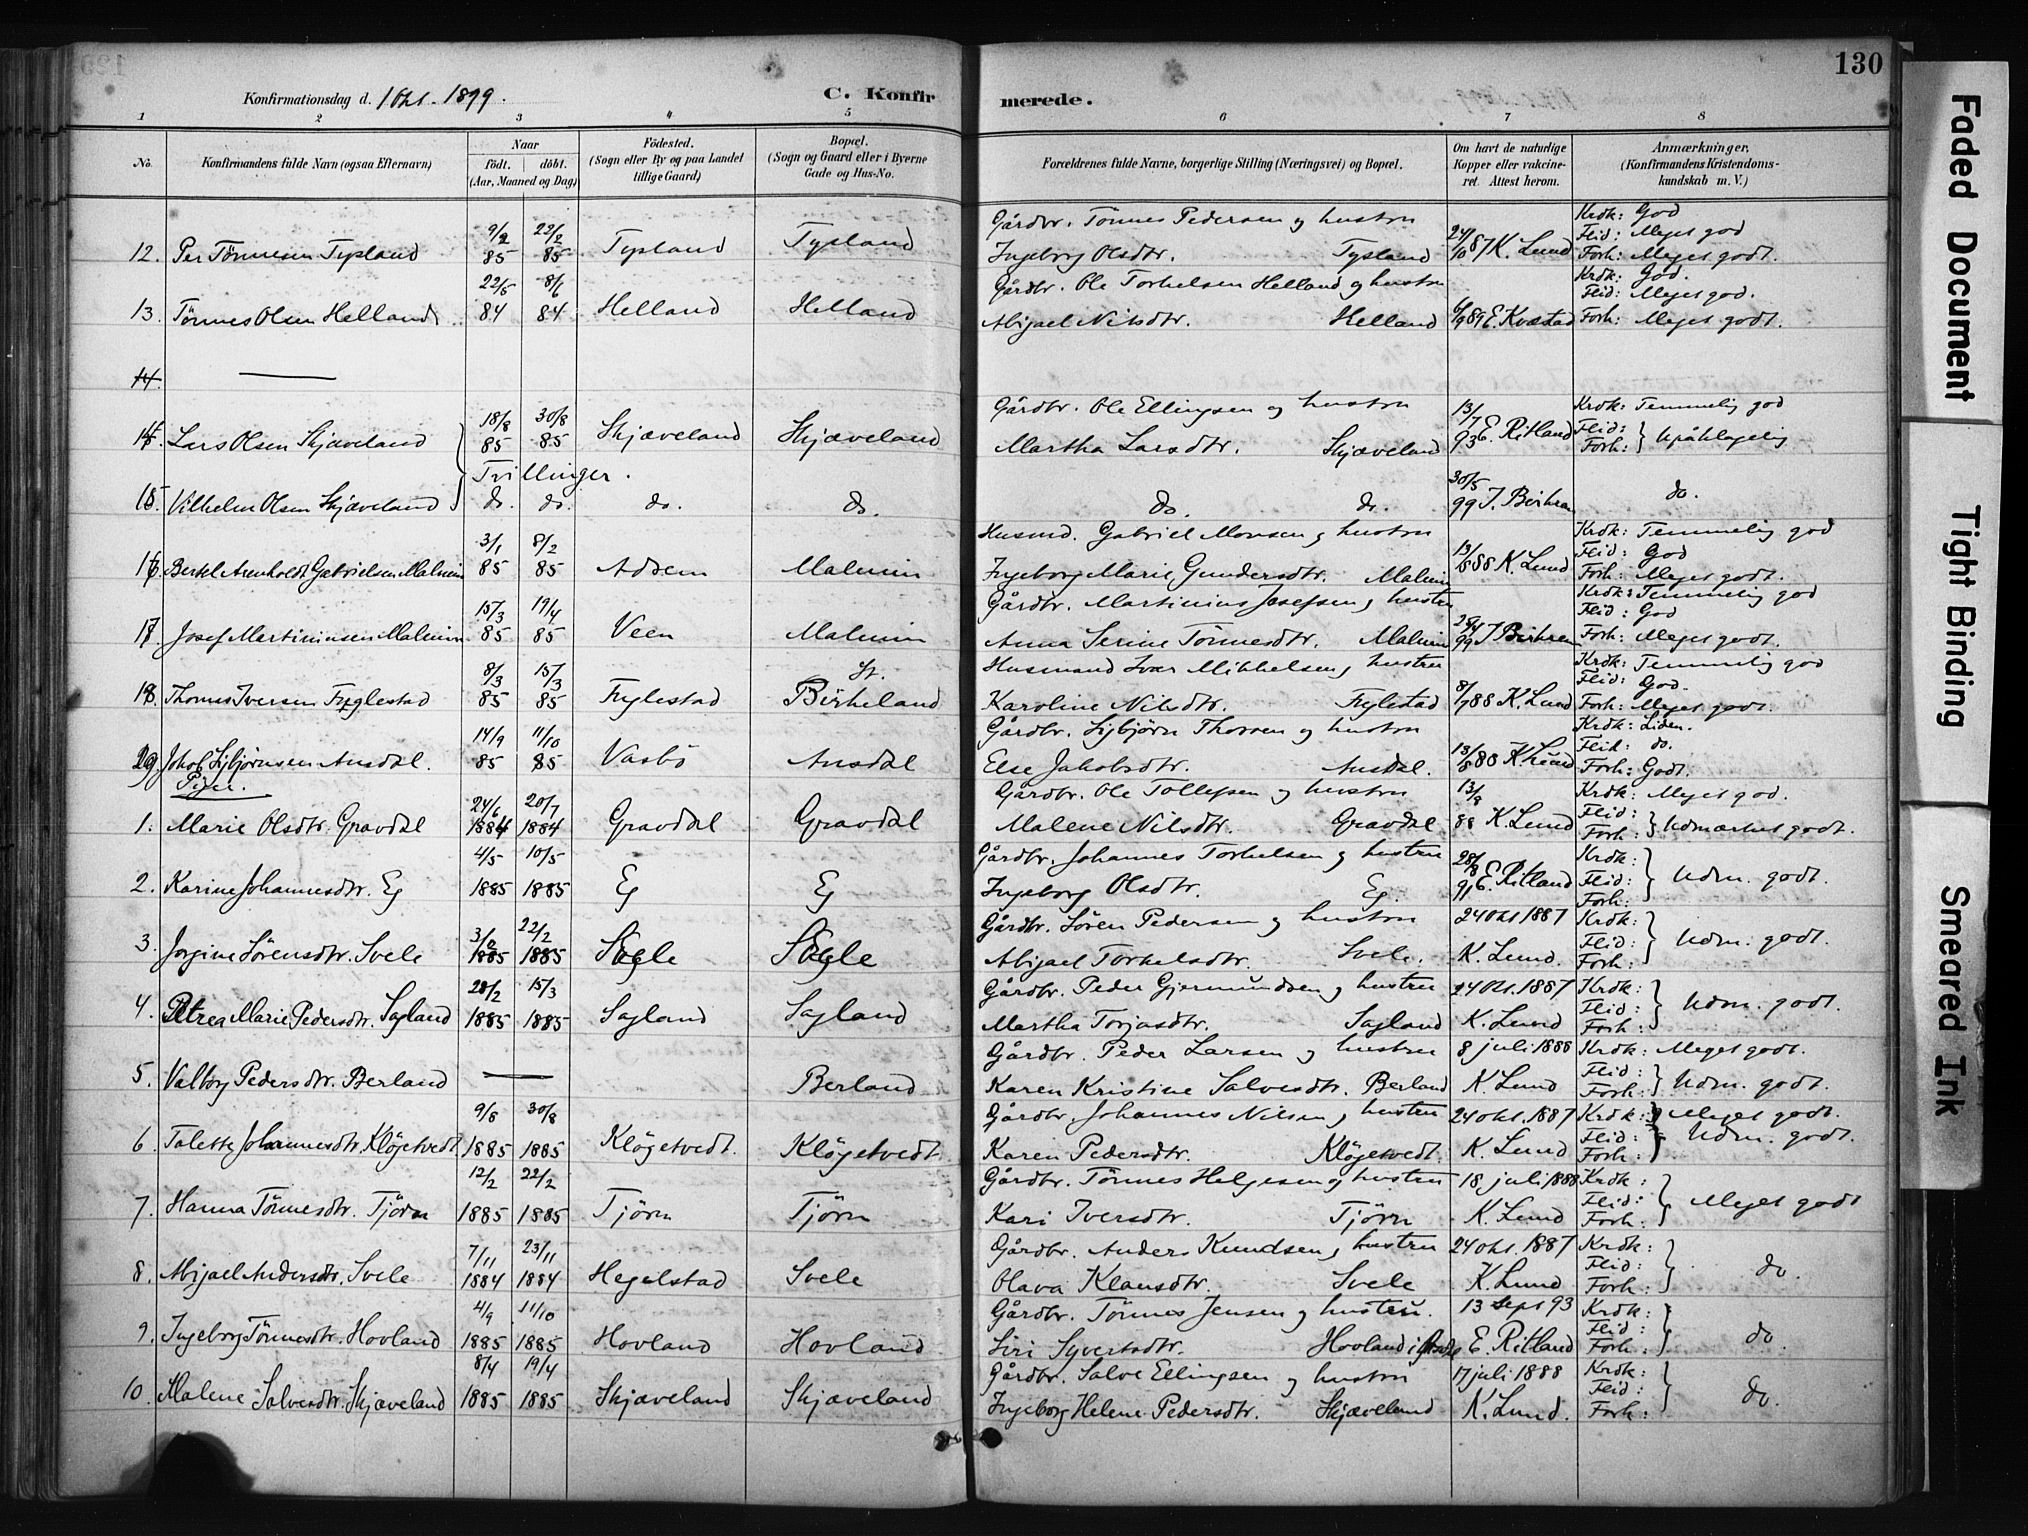 130
Konfirmationsdag d. 1 Okt. 1899. C. Konfirmerede.
1 2 3 4 5 6 7 8
No. Konfirmandens fulde Navn (ogsaa Efternavn) Naar födt. döbt. (Aar, Maaned og Dag) Födested. (Sogn eller By og paa Landet tillige Gaard) Bopæl. (Sogn og Gaard eller i Byerne Gade og Hus-No. Forældrenes fulde Navne, borgerlige Stilling (Næringsvei) og Bopæl. Om havt de naturlige Kopper eller vakcineret. Attest herom. Anmærkninger, (Konfirmandens Kristendomskundskab m. V.)
12. Per Tönnesen Tysland 9/2 85 22/2 85 Tysland Tysland Gårdbr. Tönnes Pedersen og hustru Ingeborg Olsdtr. Tysland 24/10 87 K. Lund Krdk: God Flid: Meget god Forh: Meget godt.
13. Tönnes Olsen Helland 22/5 84 8/6 84 Helland Helland Gårdbr. Ole Torkelsen Helland og hustru Abijael Nilsdtr. Helland 6/9 89 E. Kvæstad Krdk: God. Flid: Meget god. Forh: Meget godt.
14. —
14. Lars Olsen Skjæveland 18/8 85 30/8 85 Skjæveland Skjæveland Gårdbr. Ole Ellingsen og hustru Martha Larsdtr. Skjæveland 13/7 93 E. Ritland Krdk: Temmelig god Flid: Forh: } Upåklagelig
Tvillinger.
15. Vilhelm Olsen Skjæveland do. do. do. do. do. do. 30/5 99 J. Birkren do.
16. Bertel Arenholdt Gabrielsen Malmin 3/1 85 8/2 85 Adsem Malmin Husmd. Gabriel Monsen og hustru Ingeborg Marie Gundersdtr. Malmin 13/8 88 K. Lund Krdk: Temmelig god Flid: God Forh: Meget godt.
17. Josef Martiniusen Malmin 15/3 85 19/4 85 Veen Malmin Gårdbr. Martinius Josefsen og hustru Anna Serine Tönnesdtr. Malmin 99 J Birkren Krdk: Temmelig god Flid: God Forh: Meget godt.
18. Thomas Iversen Fuglestad 8/3 85 15/3 85 Fuglestad St. Birkeland Husmand Ivar Mikkelsen og hustru Karoline Nilsdtr. Fuglestad 8/7 88 K. Lund Krdk: Temmelig god Flid: God. Forh: Meget godt.
19 Jakob Sigbjörnsen Ansdal. 14/9 85 11/10 85 Vasbö Ansdal Gårdbr. Sigbjörn Thorsen og hustru Else Jakobsdtr. Ansdal. 13/8 88 K Lund Krdk: Liden. Flid: do. Forh: Godt.
Piger.
1. Marie Olsdtr. Gravdal 24/6 1884 20/7 1884 Gravdal Gravdal Gårdbr. Ole Tollefsen og hustru Malene Nilsdtr. Gravdal 13/8 88 K. Lund Krdk: Meget god. Flid: Forh: } Udmærket godt.
2. Karine Johannesdtr. Eg 4/5 1885 10/5 1885 Eg Eg Gårdbr. Johannes Torkelsen og hustru Ingeborg Olsdtr. Eg. 28/8 91 E. Ritland Krdk: Flid: Forh: } Udm. godt.
3. Jorgine Sörensdtr. Svele 3/2 1885 22/2 1885 Svele Svele Gårdbr. Sören Pedersen og hustru Abijael Torkelsdtr. Svele. 24 Okt 1887 K. Lund. Krdk: Flid: Forh: } Udm. godt.
4. Petrea Marie Pedersdtr. Sagland 20/2 1885 15/3 1885 Sagland Sagland Gårdbr. Peder Gjermundsen og hustru Martha Torjasdtr. Sagland 24 Okt. 1887 K. Lund Krdk: Flid: Forh: } Udm. godt.
5. Valborg Pedersdtr. Berland — Berland Gårdbr. Peder Larsen og hustru Karen Kristine Salvesdtr. Berland 8 juli 1888 K. Lund Krdk: Meget godt. Flid: Forh: } Udm. godt.
6. Talette Johannesdtr. Klögetvedt 9/8 1885 30/8 1885 Klögetvedt. Klögetvedt Gårdbr. Johannes Nilsen og hustru Karen Pedersdtr. Klögetvedt. 24 Okt. 1887 K. Lund Krdk: Meget godt. Flid: Forh: } Udm. godt.
7. Hanna Tönnesdtr. Tjörn 12/2 1885 22/2 1885 Tjörn Tjörn Gårdbr. Tönnes Helgesen og hustru Kari Iversdtr. Tjörn 18 juli 1888 K. Lund Krdk: Flid: Forh: } Meget godt
8. Abijael Andersdtr. Svele 7/11 1884 23/11 1884 Hegelstad Svele Gårdbr. Anders Knudsen og hustru Olava Klausdtr. Svele 24 Okt. 1887 K. Lund Krdk: Flid: Forh: } do.
9. Ingeborg Tönnesdtr. Hovland 4/9 1885 11/10 1885 Hovland Hovland Gårdbr. Tönnes Jensen og hustru. Siri Syvertsdtr. Hovland i 13 Sept 93 E. Ritland Krdk: Flid: Forh: } do
10. Malene Salvesdtr. Skjæveland 8/4 1885 19/4 1885 Skjæveland Skjæveland Gårdbr. Salve Ellingsen og hustru Ingeborg Helene Pedersdtr. Skjæveland 17 juli 1888 K. Lund. Krdk: Flid: Forh: } do.
Faded Document
Tight Binding
Smeared Ink